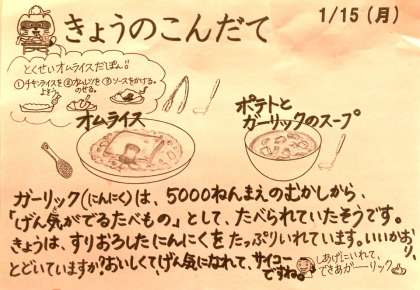 きょうのこんだて
1/15(月)
とくせいオムライスだぽん!!
①チキンライスをよそう。
②オムレツをのせる。
③ソースをかける。
オムライス
ポテトと
ガーリックのスープ
ガーリック(にんにく)は、5000ねんまえのむかしから、
「げん気がでるたべもの」として、たべられていたそうです。
きょうは、すりおろしたにんにくをたっぷりいれています。いいかおり、
とどいていますか?おいしくてげん気になれて、サイコーですね。
しあげにいれて、
できあガーリック